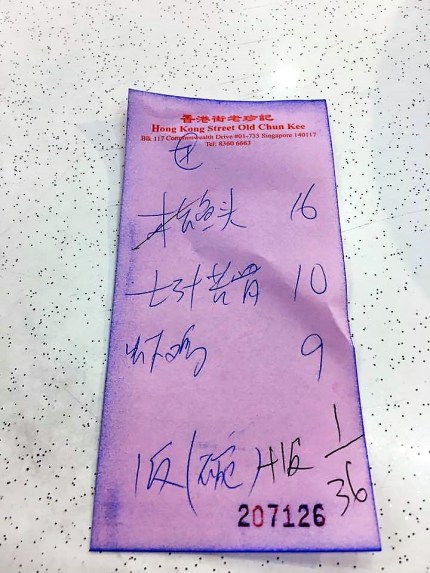 香港街老珍記
Hong Kong Street Old Chun Kee
Blk 117 Commonwealth Drive #01-733 Singapore 140117
Tel: 8360 6663
鱼头 16
骨 10
虾鸡 9
1饭(碗)+1饭 1
36
207126